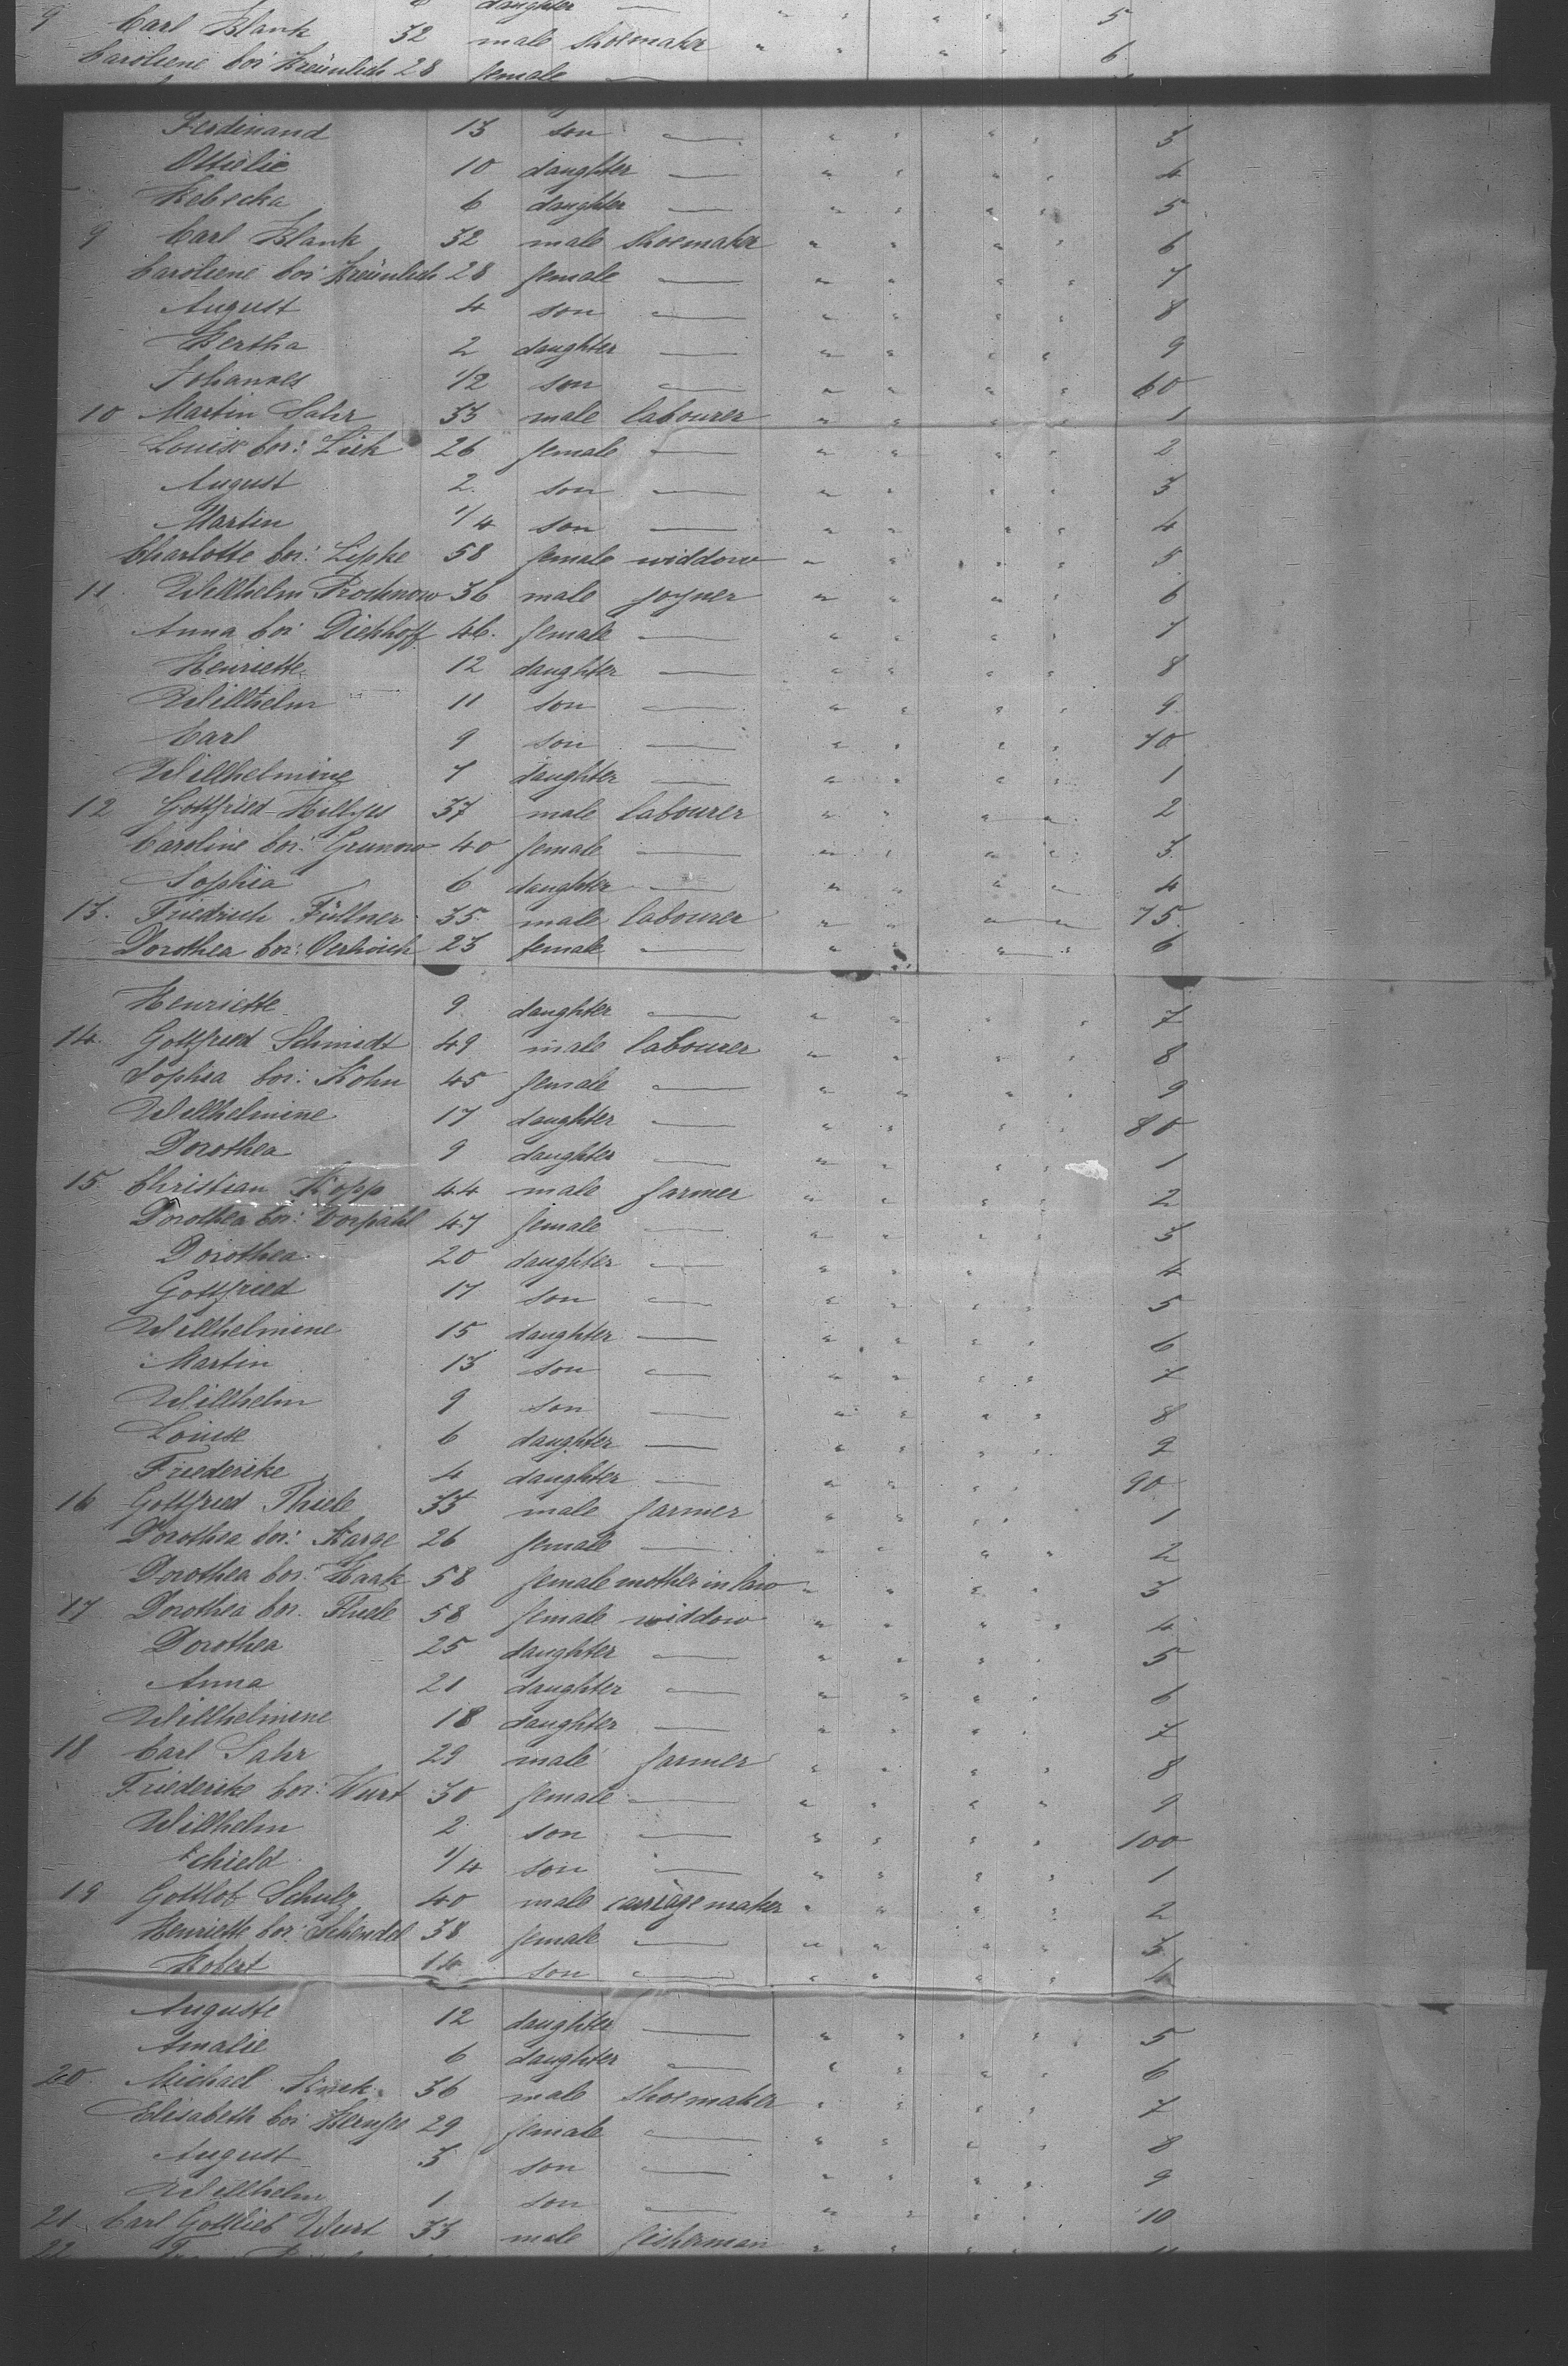 daughter —
9 Carl Blank 32 male shoemaker " " " " 5
Caroliene bor: Kreünlich 28 female — 6
Ferdinand 13 son — " " " " 3
Ottielie 10 daughter — " " " " 4
Rebecka 6 daughter — " " " " 5
9 Carl Blank 32 male shoemaker " " " " 6
Caroliene bor: Kreünlich 28 female — " " " " 7
August 4 son — " " " " 8
Bertha 2 daughter — " " " " 9
Johannes 1/2 son — " " " " 60
10 Martin Sahr 33 male labourer " " " " 1
Louise bor: Lück 26 female — " " " " 2
August 2 son — " " " " 3
Martin 1/4 son — " " " " 4
Charlotte bor: Lipke 58 female widdow " " " " 5
11 Willhelm Prochnow 36 male joyner " " " " 6
Anna bor: Dickhoff 46 female — " " " " 7
Henriette 12 daughter — " " " " 8
Willhelm 11 son — " " " " 9
Carl 9 son — " " " " 70
Willhelmine 7 daughter — " " " " 1
12 Gottfried 37 male labourer " " " " 2
Caroline bor: Grunow 40 female — " " " " 3
Sophia 6 daughter — " " " " 4
13. Friedrich Füllner 35 male labourer " " " " 75
Dorothea bor: 23 female — " " " " 6
Henriette 9 daughter — " " " " 7
14. Gottfried Schmidt 49 male labourer " " " " 8
Sophia bor: Kohn 45 female — " " " " 9
Willhelmine 17 daughter — " " " " 80
Dorothea 9 daughter — " " " " 1
15. Christian Kopp 44 male farmer " " " " 2
Dorothea bor: Vorpahl 47 female — " " " " 3
Dorothea 20 daughter — " " " " 4
Gottfried 17 son — " " " " 5
Willhelmine 15 daughter — " " " " 6
Martin 13 son — " " " " 7
Willhelm 9 son — " " " " 8
Louise 6 daughter — " " " " 9
Friederike 4 daughter — " " " " 90
16 Gottfried Thiele 33 male farmer " " " " 1
Dorothea bor: Karge 26 female — " " " " 2
Dorothea bor: Haak 58 female mother in law " " " " 3
17 Dorothea bor. Thiele 58 female widdow " " " " 4
Dorothea 25 daughter — " " " " 5
Anna 21 daughter — " " " " 6
Willhelmine 18 daughter — " " " " 7
18 Carl Sahr 29 male farmer " " " " 8
Friederike bor: Wurt 30 female — " " " " 9
Willhelm 2 son — " " " " 100
1 chield 1/4 son — " " " " 1
19 Gottlob Schulz 40 male carriage maker " " " " 2
Henriette bor: Schendel 38 female — " " " " 3
Robert 14 son — " " " " 4
Auguste 12 daughter — " " " " 5
Amalie 6 daughter — " " " " 6
20. Michael 36 male shoemaker " " " " 7
Elisabeth bor: 29 female — " " " " 8
August 3 son — " " " " 9
Willhelm 1 son — " " " " 10
21 Carl Gottlieb Wurt 33 male fisherman " " " "
22